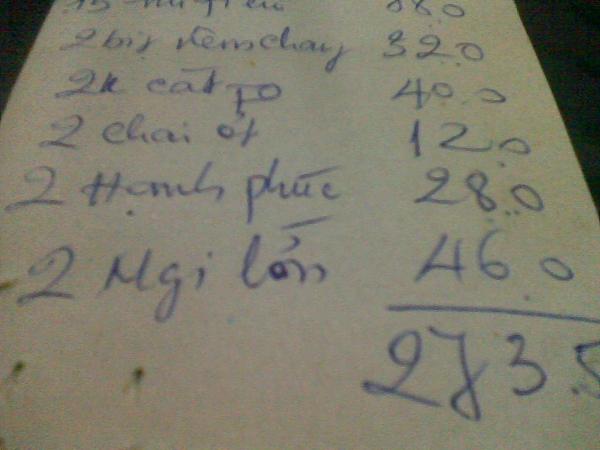 2 bịt nêm chay 32.0
2k cát to 40.0
2 chai ớt 12.0
2 Hạnh phúc 28.0
2 Mgi lớn 46.0
273.5